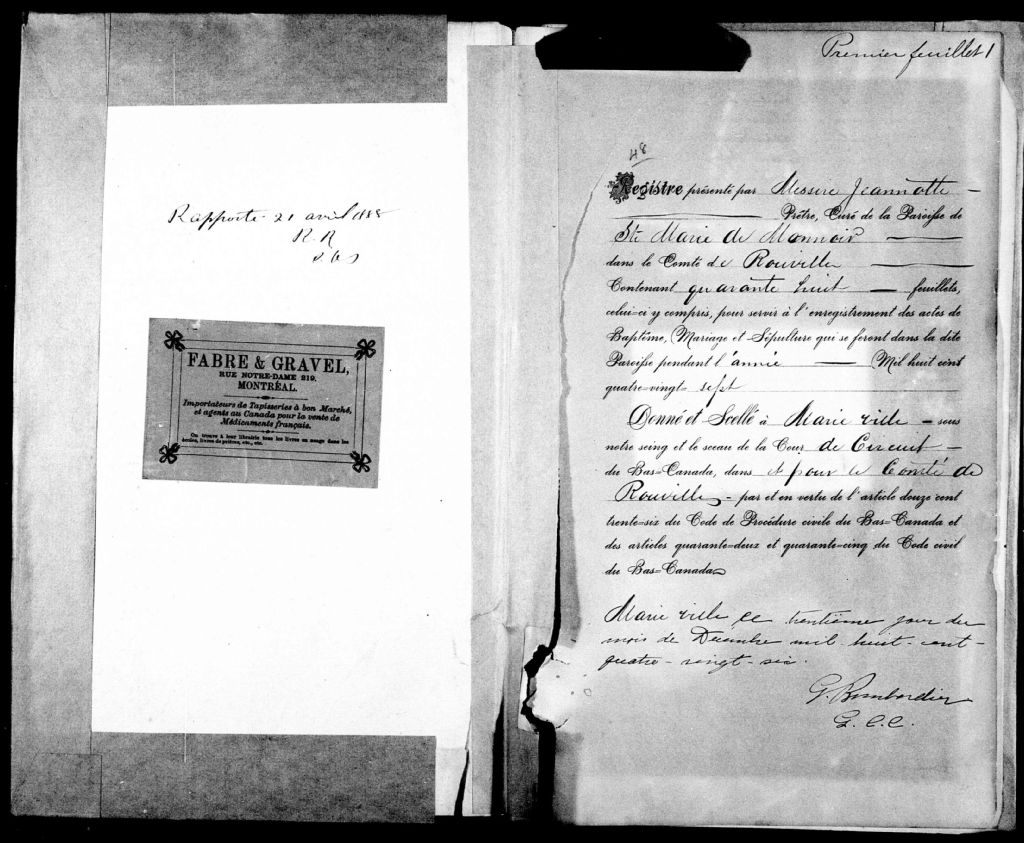 Rapporté 21 avril 1888
R. R
FABRE & GRAVEL,
RUE NOTRE-DAME 219,
MONTRÉAL.
Importateurs de Tapisseries à bon Marché,
et agents au Canada pour la vente de
Médicaments français.
On trouve à leur librairie tous les livres en usage dans les
écoles, livres de prières, etc., etc.
Premier feuillet 1
48
Registre présenté par Messire Jeannotte
Prêtre, Curé de la Paroisse de
Ste Marie de Monnoir
dans le Comté de Rouville
Contenant quarante huit feuillets,
celui-ci y compris, pour servir à l'enregistrement des actes de
Baptême, Mariage et Sépulture qui se feront dans la dite
Paroisse pendant l'année Mil huit cent
quatre-vingt sept
Donné et Scellé à Marieville sous
notre seing et le sceau de la Cour de Circuit
du Bas-Canada, dans et pour le Comté de
Rouville par et en vertu de l'article douze cent
trente-six du Code de Procédure civile du Bas-Canada et
des articles quarante-deux et quarante-cinq du Code civil
du Bas-Canada
Marieville ce trentième jour du
mois de Décembre mil huit cent
quatre-vingt-six.
G. Bombardier
G. C. C.